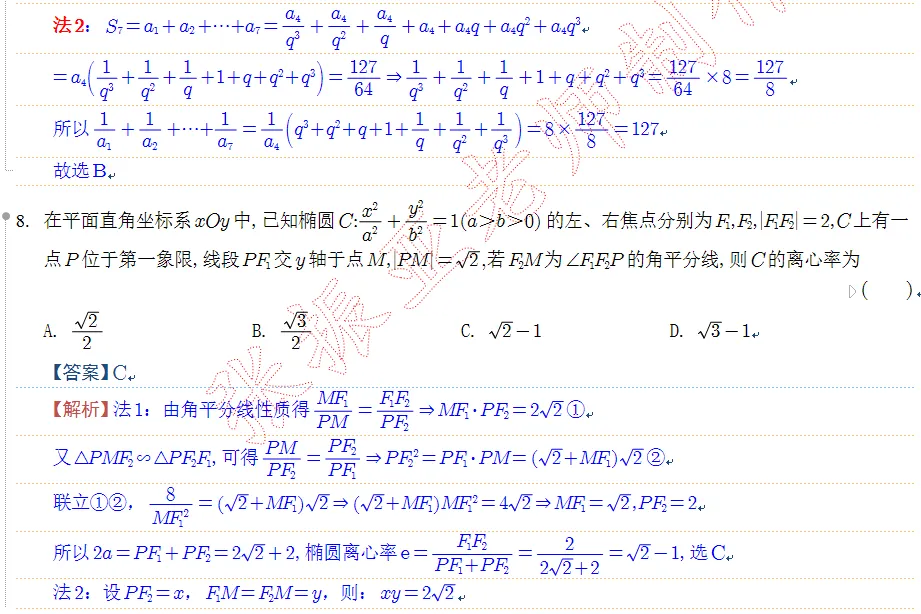 法2：S₇=a₁+a₂+⋯+a₇=a₄/q³+a₄/q²+a₄/q+a₄+a₄q+a₄q²+a₄q³
=a₄(1/q³+1/q²+1/q+1+q+q²+q³)=127/64⇒1/q³+1/q²+1/q+1+q+q²+q³=127/64×8=127/8
所以1/a₁+1/a₂+⋯+1/a₇=1/a₄(q³+q²+q+1+1/q+1/q²+1/q³)=8×127/8=127
故选B
8. 在平面直角坐标系xOy中,已知椭圆C:x²/a²+y²/b²=1(a>b>0)的左、右焦点分别为F₁,F₂,|F₁F₂|=2,C上有一
点P位于第一象限,线段PF₁交y轴于点M,|PM|=√2,若F₂M为∠F₁F₂P的角平分线,则C的离心率为
( ).
A. √2/2 B. √3/2 C. √2-1 D. √3-1
【答案】C
【解析】法1：由角平分线性质得MF₁/PM=F₁F₂/PF₂⇒MF₁·PF₂=2√2①
又△PMF₂∽△PF₂F₁,可得PM/PF₂=PF₂/PF₁⇒PF₂²=PF₁·PM=(√2+MF₁)√2②
联立①②，8/MF₁²=(√2+MF₁)√2⇒(√2+MF₁)MF₁²=4√2⇒MF₁=√2,PF₂=2
所以2a=PF₁+PF₂=2√2+2,椭圆离心率e=F₁F₂/(PF₁+PF₂)=2/(2√2+2)=√2-1,选C
法2：设PF₂=x，F₁M=F₂M=y，则：xy=2√2
张振亚老师制作